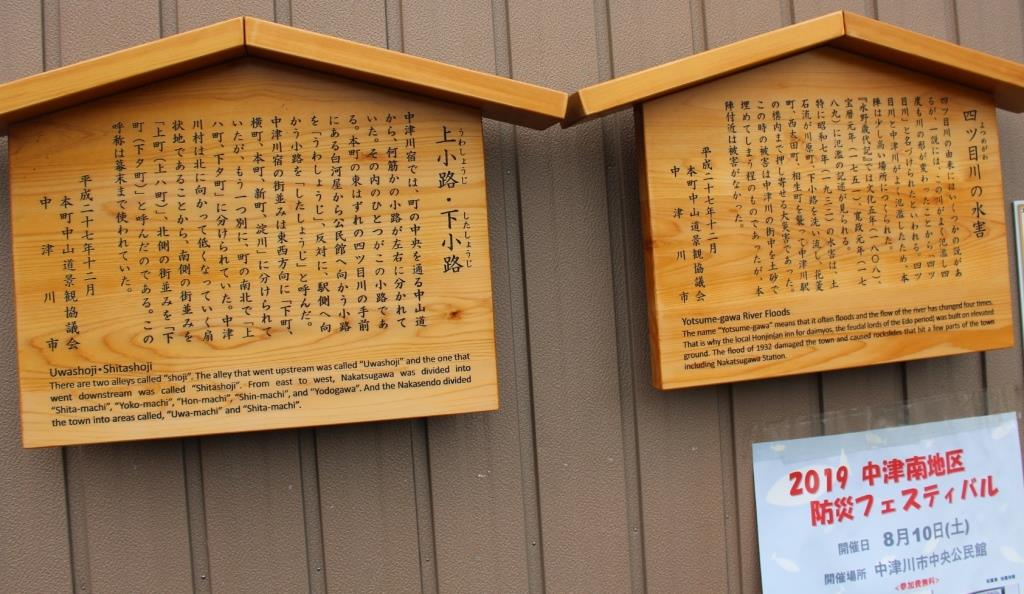 上小路・下小路
うわしょうじ
したしょうじ
中津川宿では、町の中央を通る中山道
から、何筋かの小路が左右に分かれて
いた。その内のひとつがこの小路であ
る。本町の東はずれの四ツ目川の手前
にある白河屋から公民館へ向かう小路
を「うわしょうじ」、反対に、駅側へ向
かう小路を「したしょうじ」と呼んだ。
中津川宿の街並みは東西方向に「下町、
横町、本町、新町、淀川」に分けられて
いたが、もう一つ別に、町の南北で「上
ハ町、下タ町」に分けられていた。中津
川村は北に向かって低くなっていく扇
状地であることから、南側の街並みを
「上町(上ハ町)」、北側の街並みを「下
町(下タ町)」と呼んだのである。この
呼称は幕末まで使われていた。
平成二十七年十二月
本町中山道景観協議会
中津川市
Uwashoji・Shitashoji
There are two alleys called "shoji". The alley that went upstream was called "Uwashoji" and the one that
went downstream was called "Shitashoji". From east to west, Nakatsugawa was divided into
"Shita-machi", "Yoko-machi", "Hon-machi", "Shin-machi", and "Yodogawa". And the Nakasendo divided
the town into areas called, "Uwa-machi" and "Shita-machi".
四ツ目川の水害
よつめがわ
四ツ目川の由来にはいくつかの説があ
るが、一説には、この川がよく氾濫し四
度も川の形が変わったことから「四ツ
目川」と名づけられたといわれる。四ツ
目川と中津川がよく氾濫したため、本
陣は少し高い場所につくられた。
『永野歳代記』では文化五年(一八〇八)、
宝暦元年(一七五一)、寛政元年(一七
八九)に氾濫の記述が見られる。
特に昭和七年(一九三二)の水害は、土
石流が川原町、下小路を洗い流し、花菱
町、西太田町、相生町を襲って中津川駅
の構内まで押し寄せる大災害であった。
この時の被害は中津川の街中を土砂で
埋めてしまう程のものであったが、本
陣付近は被害がなかった。
平成二十七年十二月
本町中山道景観協議会
中津川市
Yotsume-gawa River Floods
The name "Yotsume-gawa" means that it often floods and the flow of the river has changed four times.
That is why the local Honjin(an inn for daimyos, the feudal lords of the Edo period) was built on elevated
ground. The flood of 1932 damaged the town and caused rockslides that hit a few parts of the town
including Nakatsugawa Station.
2019 中津南地区
防災フェスティバル
開催日 8月10日(土)
開催場所 中津川市中央公民館
<参加費無料>